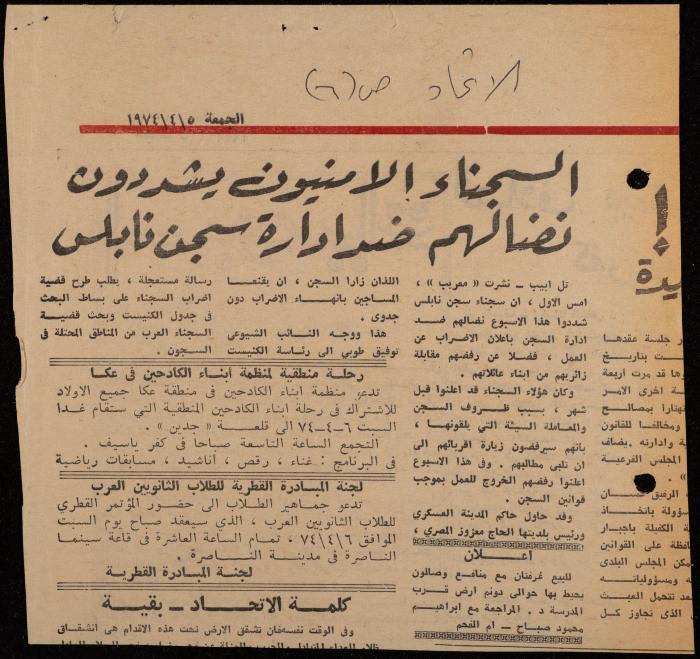 الاتحاد ص (٦)
الجمعة ١٩٧٤/٤/٥
السجناء الامنيون يشددون
نضالهم ضد ادارة سجن نابلس
تل ابيب ــ نشرت « معريب » ،
امس الاول ، ان سجناء سجن نابلس
شددوا هذا الاسبوع نضالهم ضد
ادارة السجن باعلان الاضراب عن
العمل ، فضلا عن رفضهم مقابلة
زائريهم من ابناء عائلاتهم .
وكان هؤلاء السجناء قد اعلنوا قبل
شهر ، بسبب ظروف السجن
والمعاملة السيئة التي يلقونها ،
بأنهم سيرفضون زيارة اقربائهم الى
ان تلبى مطالبهم . وفي هذا الاسبوع
اعلنوا رفضهم الخروج للعمل بموجب
قوانين السجن .
وقد حاول حاكم المدينة العسكري
ورئيس بلديتها الحاج معزوز المصري ،
اللذان زارا السجن ، ان يقنعا
المساجين بانهاء الاضراب دون
جدوى .
هذا ووجه النائب الشيوعي
توفيق طوبي الى رئاسة الكنيست
رسالة مستعجلة ، يطلب طرح قضية
اضراب السجناء على بساط البحث
في جدول الكنيست وبحث قضية
السجناء العرب من المناطق المحتلة في
السجون .
اعلان
للبيع غرفتان مع منافع وصالون
يحيط بها حوالي دونم ارض قرب
المدرسة د . المراجعة مع ابراهيم
محمود صباح ــ ام الفحم
رحلة منطقية لمنظمة أبناء الكادحين في عكا
تدعو منظمة ابناء الكادحين في منطقة عكا جميع الاولاد
للاشتراك في رحلة ابناء الكادحين المنطقية التي ستقام غدا
السبت ٦-٤-٧٤ الى قلعة « جدين » .
التجمع الساعة التاسعة صباحا في كفر ياسيف .
في البرنامج : غناء ، رقص ، أناشيد ، مسابقات رياضية
لجنة المبادرة القطرية للطلاب الثانويين العرب
تدعو جماهير الطلاب الى حضور المؤتمر القطري
للطلاب الثانويين العرب ، الذي سيعقد صباح يوم السبت
الموافق ٧٤/٤/٦ ، تمام الساعة العاشرة في قاعة سينما
الناصرة في مدينة الناصرة .
لجنة المبادرة القطرية
كلمة الاتحاد ــ بقية
وفي الوقت نفسه
تنشق الارض تحت هذه الاقدام هي انشقاق
جلسة عقدها
ت بتاريخ
ها قد مرت أربعة
ة اخرى الامر
تهتارا بمصالح
ومخالفا للقانون
وادارته . يضاف
المجلس الفرعية
الرفيق
سؤولة باتخاذ
ة الكفيلة باجبار
افظة على القوانين
مكن المجلس البلدي
ومسؤولياته
عد نتحمل العبث
الذي تجاوز كل